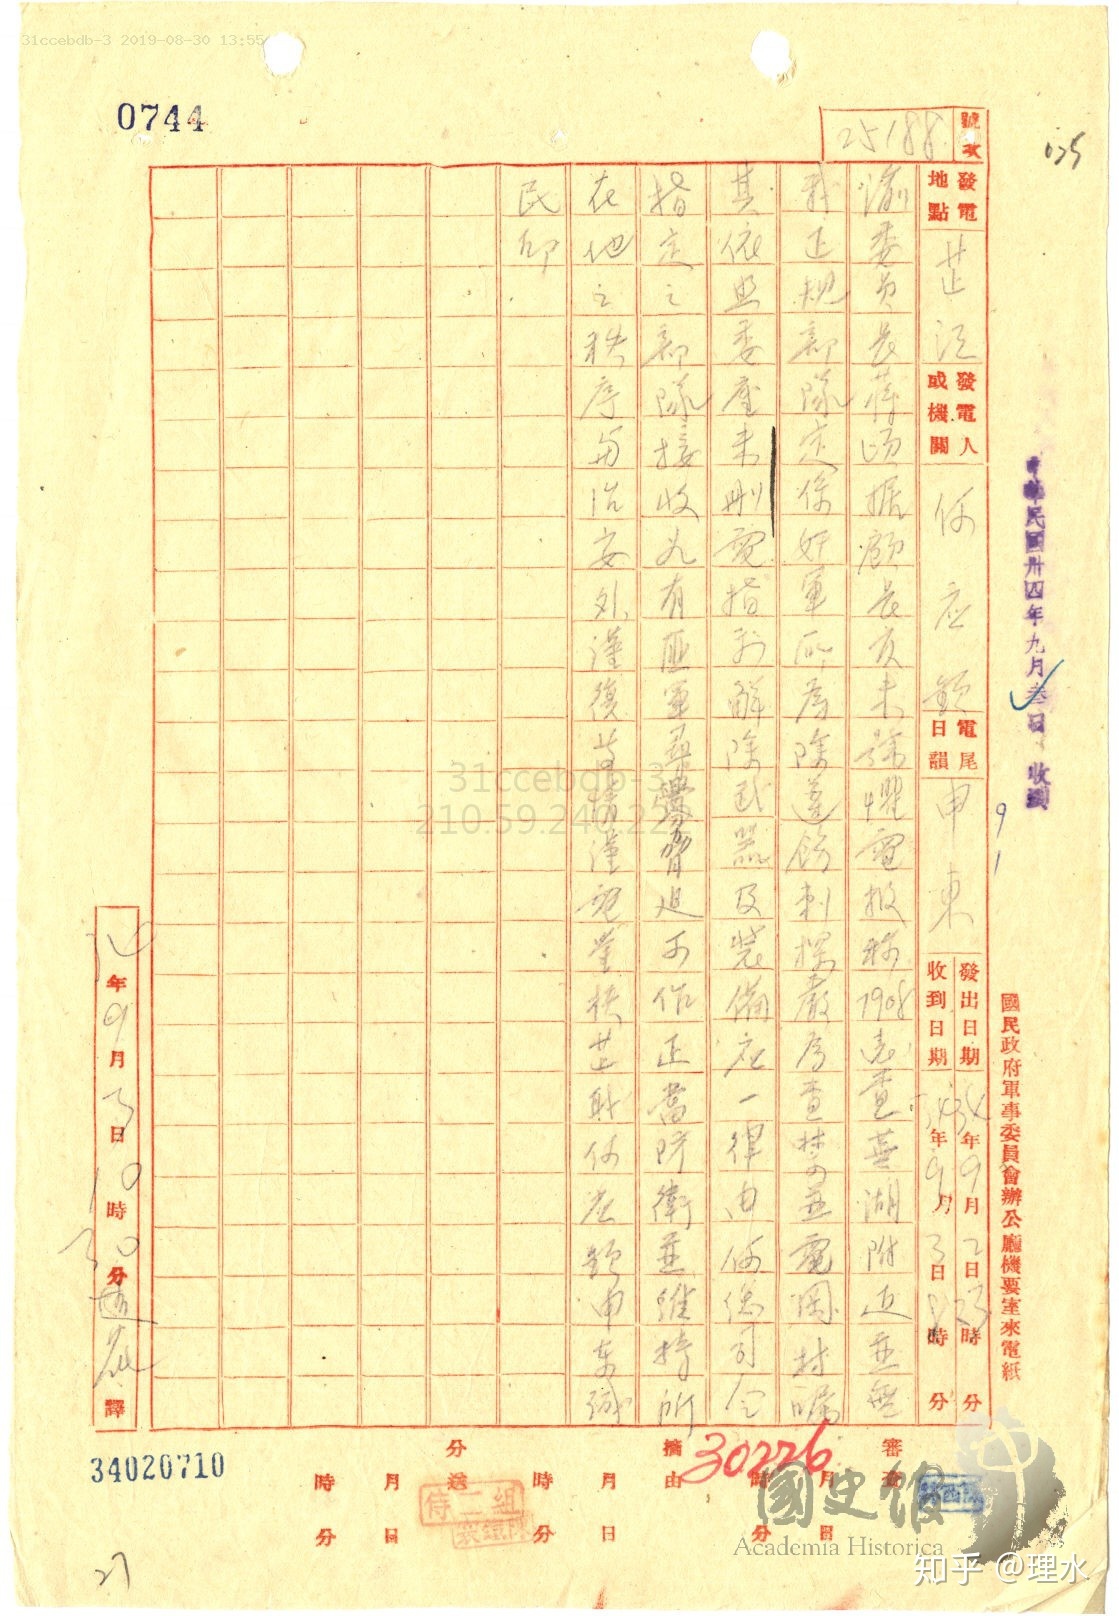 31ccebdb-3 2019-08-30 13:55
0744
號次 25188
025
發電地點 芷江
發電人或機關 何应欽
電尾日韻 申東
9 1
發出日期 34年9月2日23時 分
收到日期 34年9月3日8時 分
國民政府軍事委員會辦公廳機要室來電紙
中華民國卅四年九月叁日 收到
渝委員長蔣頃據顧長官未
電報称1908志查蕪湖附近並無
我正規部隊定係奸軍所為除遵飭
嚴為查禁並電岡村嘱
其依照委座未刪電指示解除武器及裝備应一律由何總司令
指定之部隊接收凡有匪軍尋釁脅迫可作正當防衛並維持所
在地之秩序与治安外謹復等情謹電鑒核芷職何应欽申東誠
民印
31ccebdb-3
210.59.240.222
34年9月3日10時30分 譯
34020710
審查 月 日 時 分
摘由 月 日 時 分
分送 月 日 時 分
30226
侍二組
27
國史館
Academia Historica
知乎 @理水